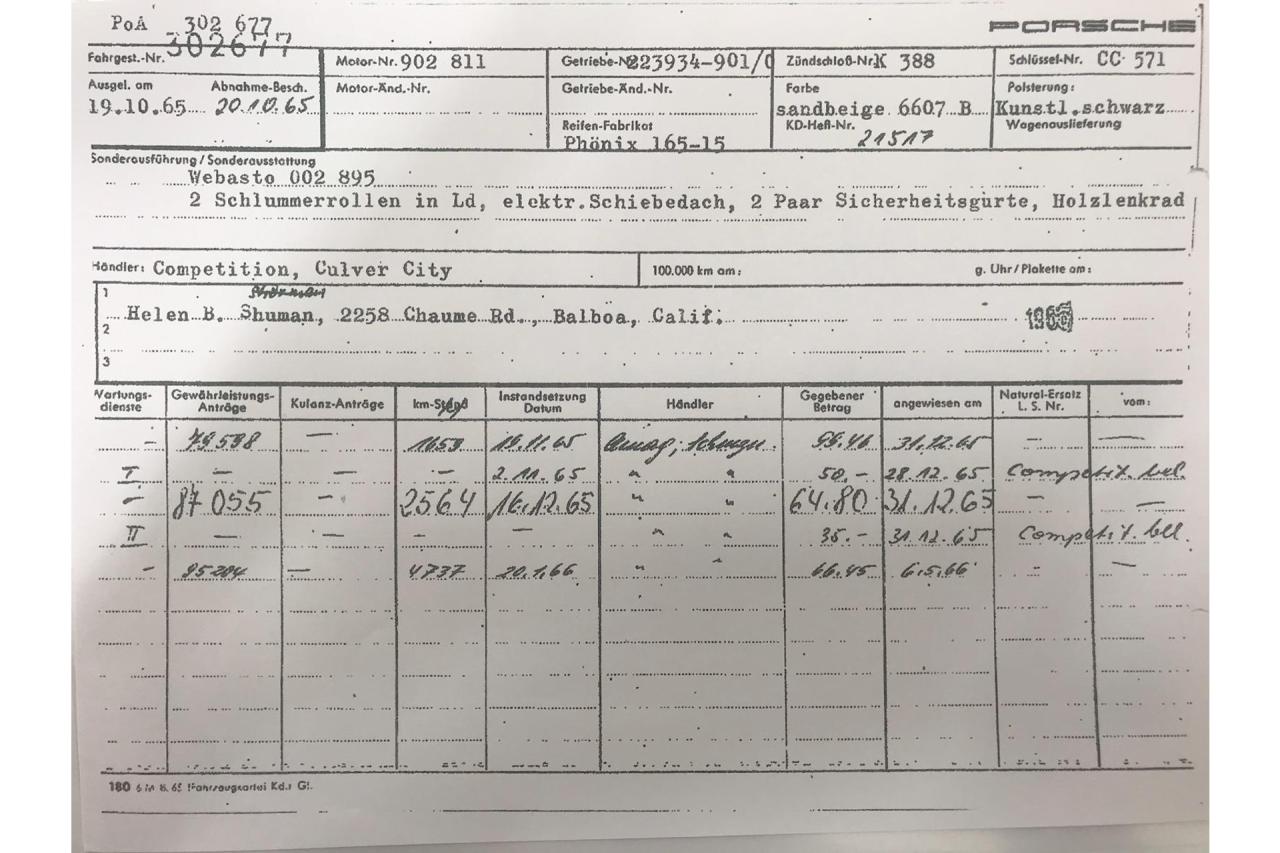 PoA 302 677
PORSCHE
Fahrgest.-Nr. 302677
Motor-Nr. 902 811
Getriebe-Nr. 223934-901/0
Zündschloß-Nr. K 388
Schlüssel-Nr. CC 571
Ausgel. am Abnahme-Besch.
19.10.65 20.10.65
Motor-Änd.-Nr.
Getriebe-Änd.-Nr.
Farbe
sandbeige 6607 B
Polsterung:
Kunstl.schwarz
Reifen-Fabrikat
Phönix 165-15
KD-Heft-Nr. 21517
Wagenauslieferung
Sonderausführung / Sonderausstattung
Webasto 002 895
2 Schlummerrollen in Ld, elcktr.Schiebedach, 2 Paar Sicherheitsgurte, Holzlenkrad
Händler: Competition, Culver City
100.000 km am:
g. Uhr / Plakette am:
1
Helen B. Shuman, 2258 Chaume Rd., Balboa, Calif.
2
3
Wartungs-dienste Gewährleistungs-Anträge Kulanz-Anträge km-Stand Instandsetzung Datum Händler Gegebener Betrag angewiesen am Natural-Ersatz L. S. Nr. vom:
– 79598 – 1653 19.11.65 31.12.65 – –
I – – – 2.11.65 " " 50.- 28.12.65 Competit. bel.
– 87055 – 2564 16.12.65 " " 64.80 31.12.65 – –
II – – – – " " 35.- 31.12.65 Competit. bel.
– 95204 – 4737 20.1.66 " " 66.45 6.5.66 – –
180